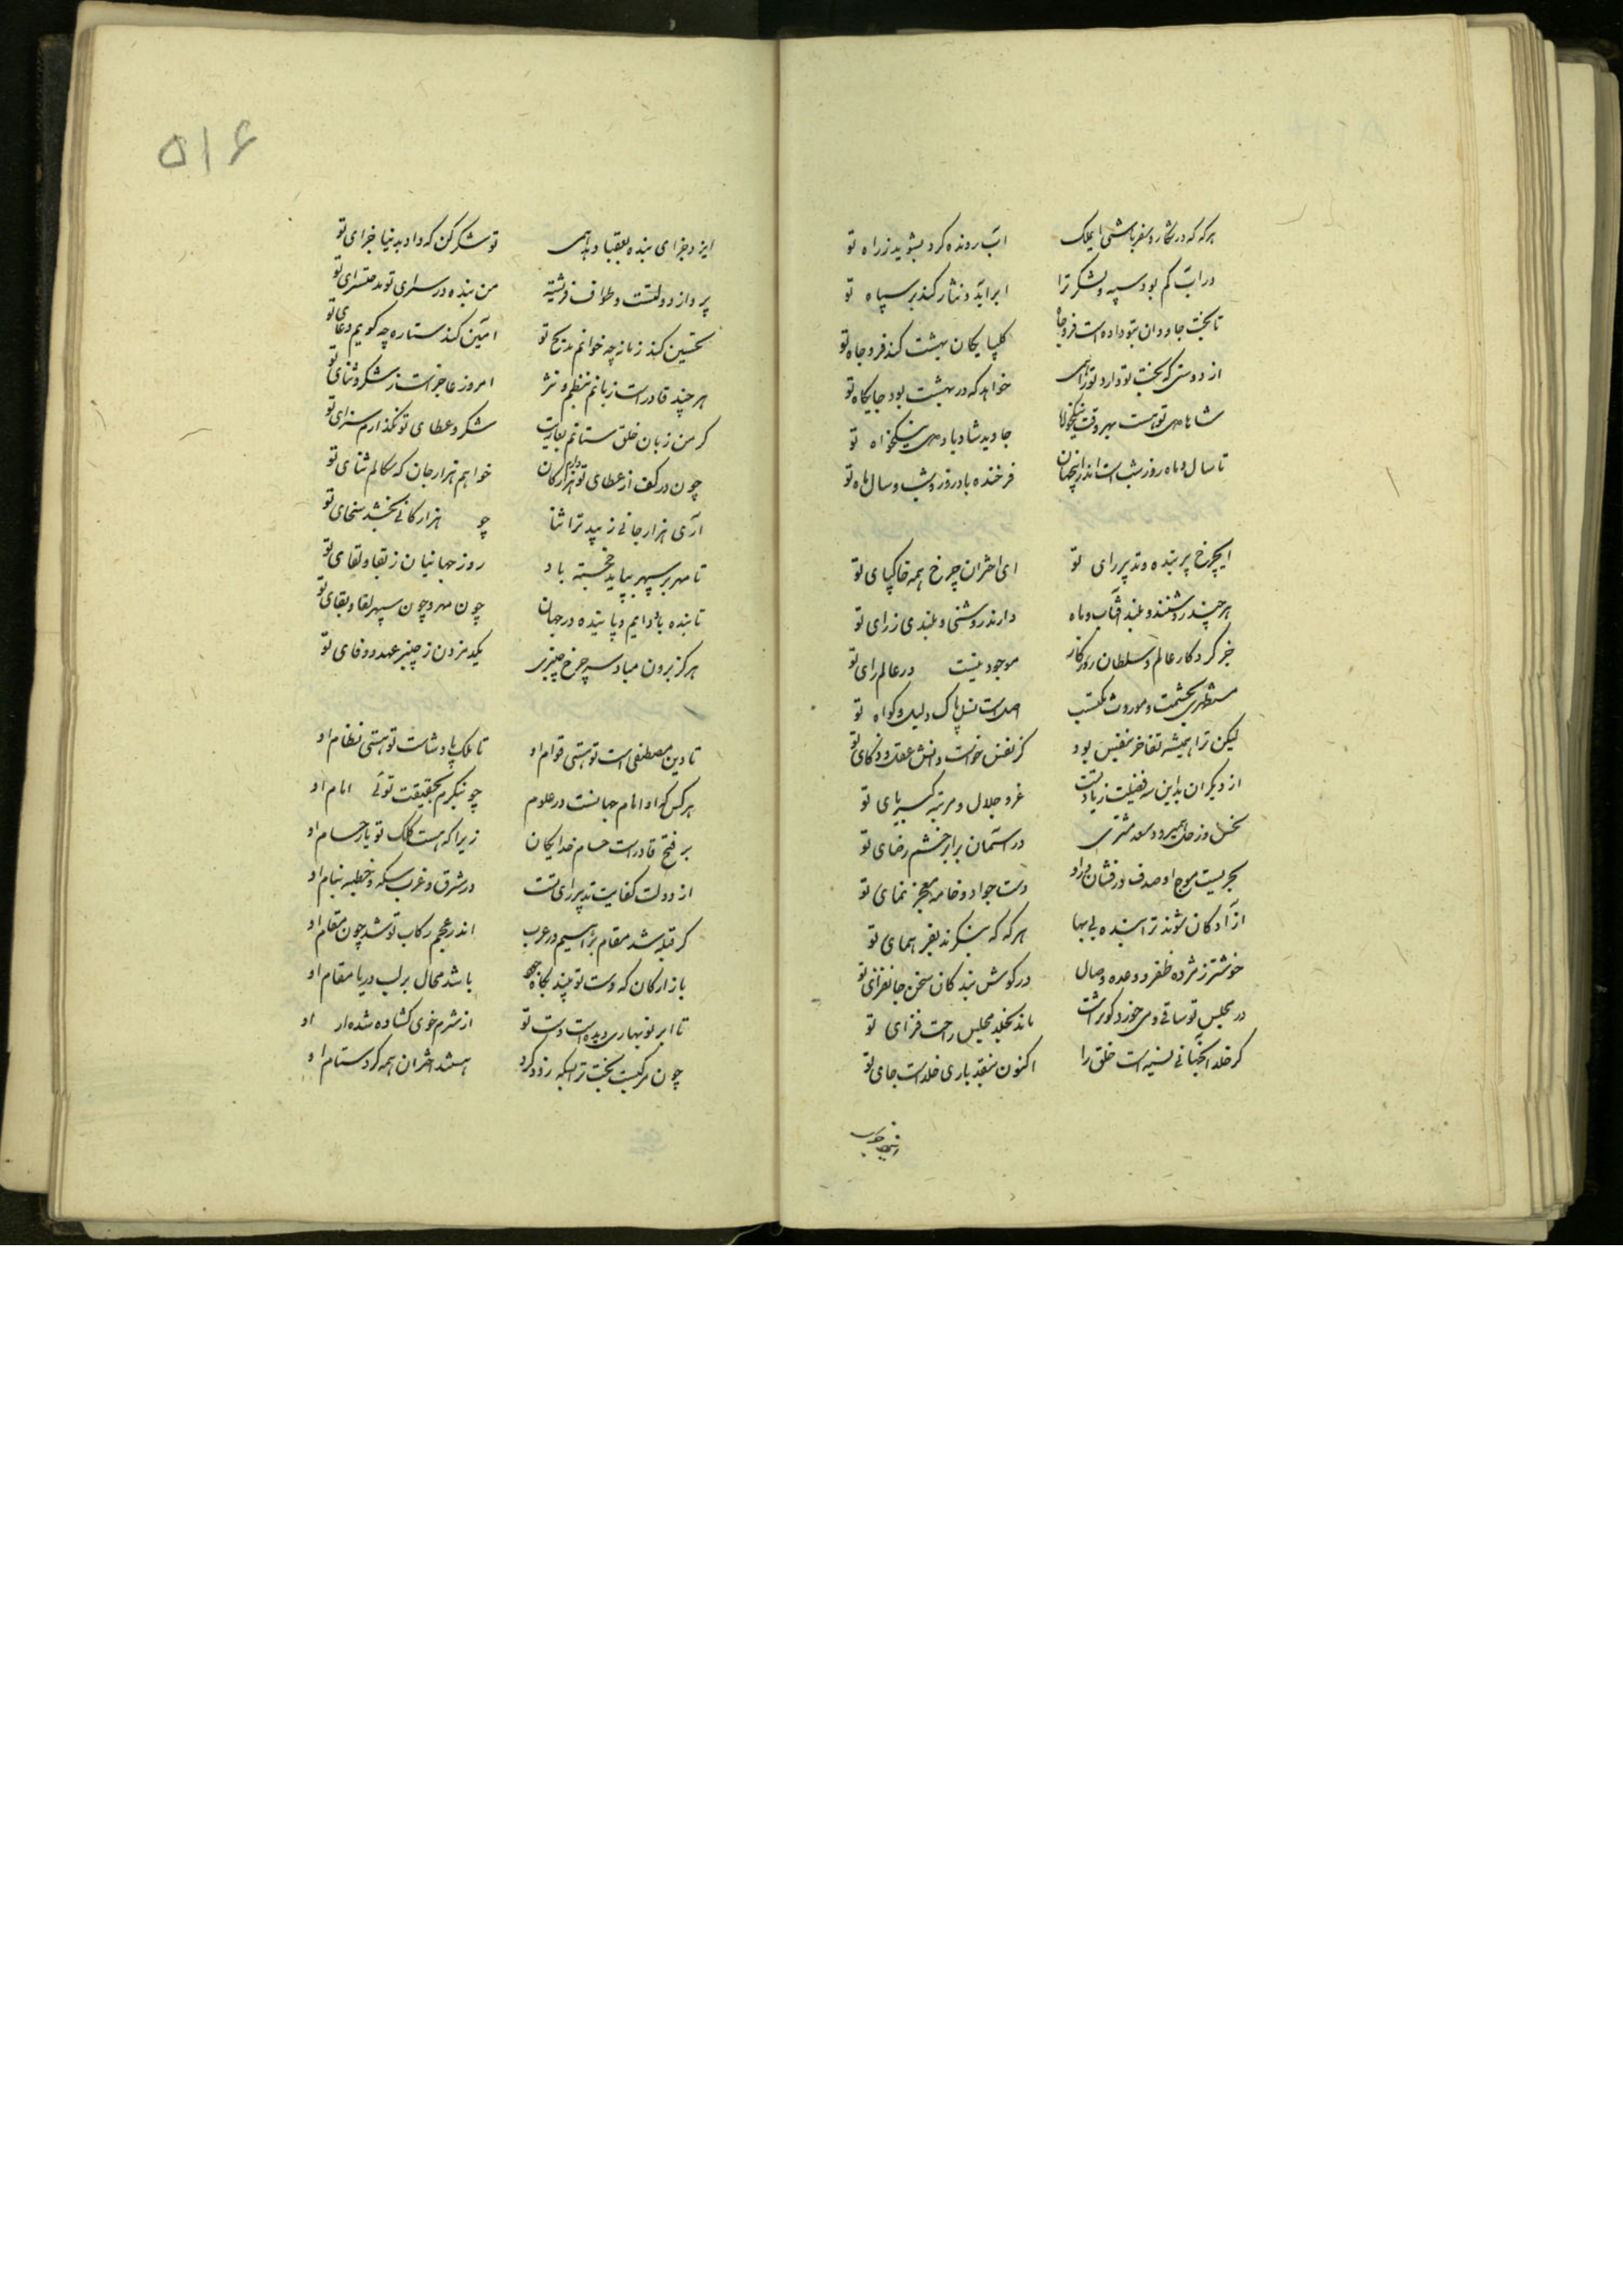 هرکه که در شکار و سفر باشی ایملک   ابر رونده کرد بشوید ز راه تو
ور آب کم بود سپه و لشکر ترا   ابر آید و نثار کند بر سپاه تو
تا بخت جاودان بتو داده است فر و جاه   کلپایکان بهشت کند فر و جاه تو
از دوستی که بخت تو دارد ترا همی   خواهد که در بهشت بود جایگاه تو
شاها می تو هست بهر وقت نیکخواه   جاوید شاد باد می نیکخواه تو
تا سال و ماه و روز و شب است اندر اینجهان   فرخنده باد روز و شب و سال و ماه تو
ایچرخ پیر بنده تدبیر رای تو   ای اختران چرخ همه خاکپای تو
هرچند روشنند و بلند آفتاب و ماه   دارند روشنی و بلندی ز رای تو
جز کردکار عالم و سلطان روزکار   موجود نیست در عالم رای تو
مستظهری بحشمت موروث و مکتسب   اصل است نسل پاک دلیل و کواه تو
لیکن ترا همیشه تفاخر بنفس بود   کز نفس خواست دانش و عقل و ذکای تو
از دیکران بدین سه فضیلت زیادتست   عز و جلال و مرتبه کبریای تو
نحس زحل همیرود و سعد مشتری   در آسمان برابر خشم و رضای تو
بحریست موج او صدف در فشان مراد   دست جواد و خامه معجز نمای تو
آزادکان شوند ترا بنده بی بها   هرکه که بنگرند بفر همای تو
خوشتر ز مژده ظفر و وعده وصال   در کوش بندکان سخن جانفزای تو
در مجلس تو ساقی و می حور و کوثر است   ماند بخلد مجلس راحت فزای تو
کر خلد آنجهانی نسیه است خلق را   اکنون بنقد باری خلد است جای تو
۵۱۶
ایزد جزای بنده بعقبا دهد همی   تو شکر کن که داد بدنیا جزای تو
پرواز دولتست و طواف فرشته   من بنده در سرای تو مدحتسرای تو
تحسین کند زمانه چو خوانم مدیح تو   آمین کند ستاره چو کویم دعای تو
هرچند قادر است زبانم بنظم و نثر   امروز عاجز است ز شکر و ثنای تو
کر من زبان خلق ستانم بعاریت   شکر و عطای تو نکذارم سزای تو
چون در کف از عطای تو دارم هزار کان   خواهم هزار جان که سکالم ثنای تو
آری هزار جانی زیبد ترا ثنا   چو هزار کانی بخشد سخای تو
تا مهر بر سپهر بپاید خجسته باد   روز جهانیان ز بقا و لقای تو
تابنده باد دایم و پاینده در جهان   چون مهر و چون سپهر لقا و بقای تو
هرکز برون مباد سر چرخ چنبری   یکدم زدن ز چنبر عهد و وفای تو
تا دین مصطفی است تو هستی قوام او   تا ملک پادشاست تو هستی نظام او
هرکس که او امام جهانست در علوم   چو بنکرم بحقیقت توئی امام او
بر فتح قادر است حسام خدایکان   زیرا که هست کلک تو یار حسام او
از دولت کفایت و تدبیر رای تست   در شرق و غرب سکه و خطبه بنام او
کر قبله شد مقام براهیم در عرب   اندر عجم رکاب تو شد چون مقام او
بازارکان که دست تو بیند بکاه جود   باشد محال بر لب دریا مقام او
تا ابر نوبهاری دیده است دست تو   از شرم خوی کشاده شده از او
چون مرکبیست بخت ترا سکه زود کرد   هستند اختران همه کرد ستام او